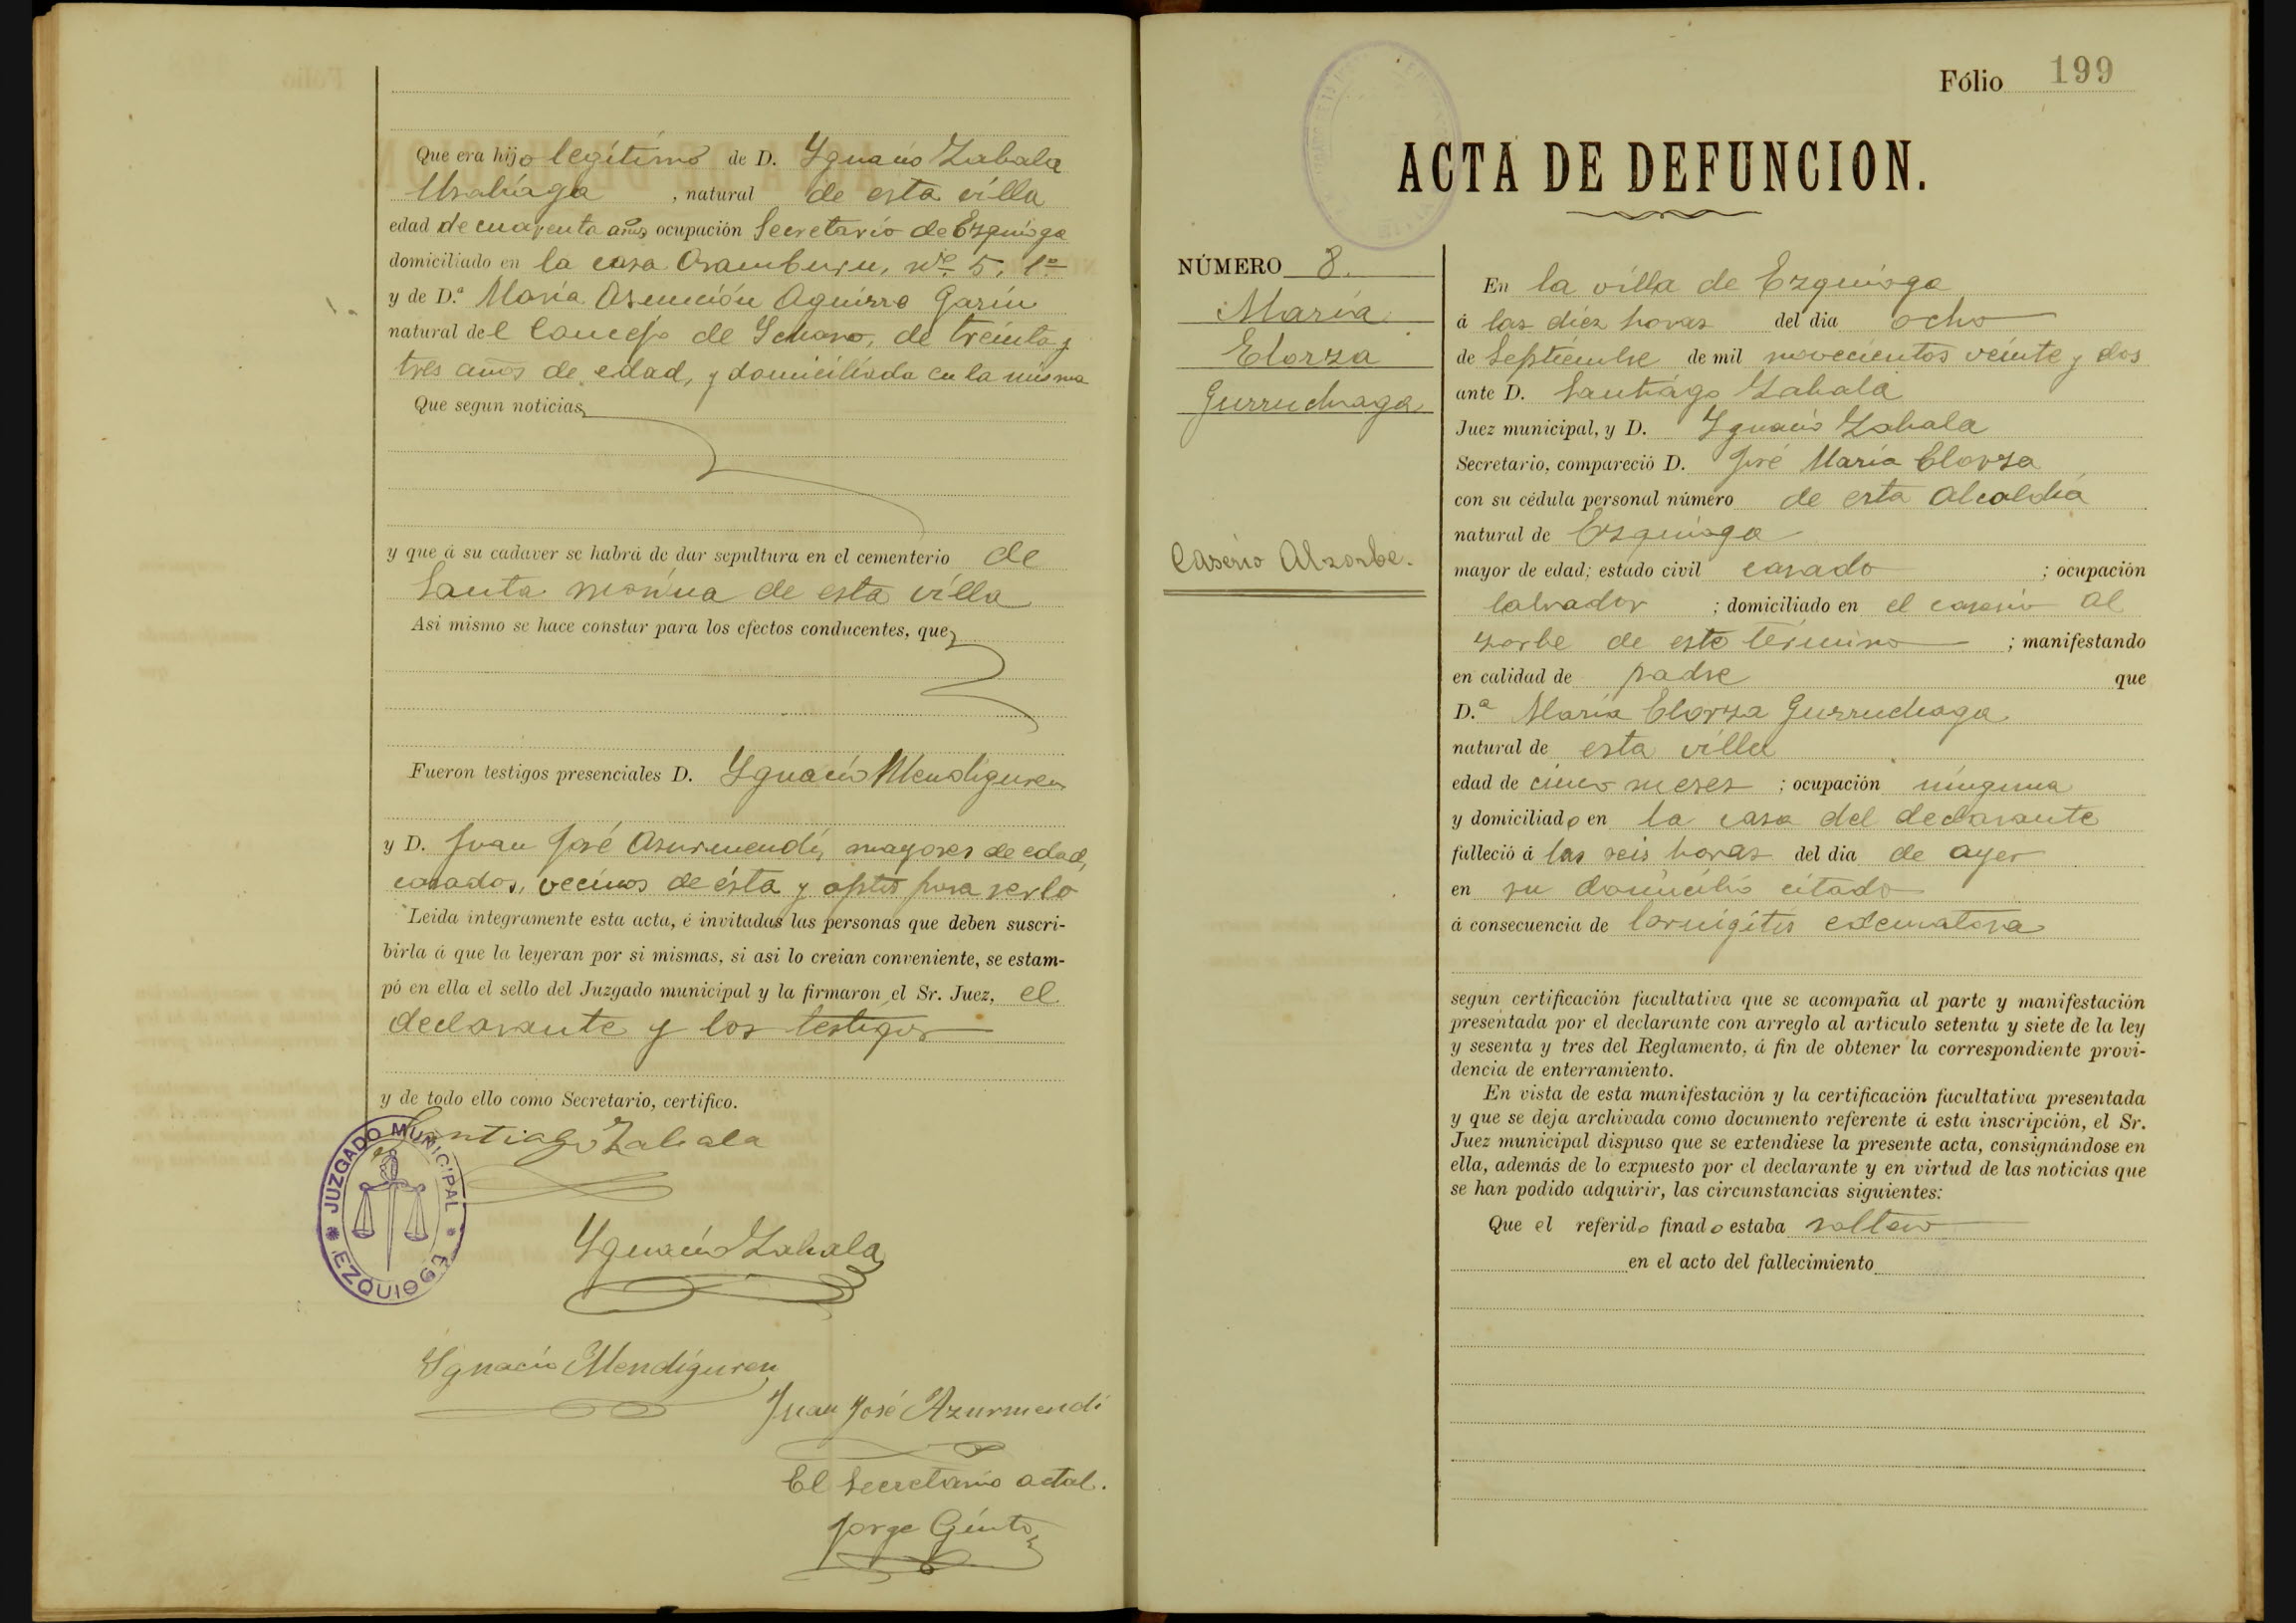 Que era hijo legítimo de D. Ygnacio Zabala
Usabiaga, natural de esta villa
edad de cuarenta años ocupación Secretario de Ezquioga
domiciliado en la casa Aramburu, nº 5, 1º
y de D.ª María Asunción Aguirre Garín
natural del Concejo de de treinta y
tres años de edad, y domiciliada en la misma
Que segun noticias
y que á su cadaver se habrá de dar sepultura en el cementerio de
Santa marina de esta villa
Asi mismo se hace constar para los efectos conducentes, que
Fueron testigos presenciales D. Ygnacio Mendiguren
y D. Juan José Asurmendi, mayores de edad,
casados, vecinos de ésta y aptos para serlo
Leida integramente esta acta, é invitadas las personas que deben suscri-
birla á que la leyeran por si mismas, si asi lo creian conveniente, se estam-
pó en ella el sello del Juzgado municipal y la firmaron el Sr. Juez, el
declarante y los testigos
y de todo ello como Secretario, certifico.
Santiago Zabala
JUZGADO MUNICIPAL
EZQUIOGA
Ygnacio Zabala
Ygnacio Mendiguren
Juan José Azurmendi
El Secretario actal.
Jorge
Fólio 199
ACTA DE DEFUNCION.
NÚMERO 8.
María
Elorza
Gurruchaga
Caserio Alzorbe.
En la villa de Ezquioga
á las diez horas del dia ocho
de Septiembre de mil novecientos veinte y dos
ante D. Santiago Zabala
Juez municipal, y D. Ygnacio Zabala
Secretario, compareció D. José María Elorza
con su cédula personal número de esta Alcaldía
natural de Ezquioga
mayor de edad; estado civil casado ; ocupación
labrador ; domiciliado en el caserio Al
zorbe de este término ; manifestando
en calidad de padre que
D.ª María Elorza Gurruchaga
natural de esta villa
edad de cinco meses ; ocupación ninguna
y domiciliado en la casa del declarante
falleció á las seis horas del dia de ayer
en su domicilio citado
á consecuencia de larnigitis edematosa
segun certificación facultativa que se acompaña al parte y manifestación
presentada por el declarante con arreglo al articulo setenta y siete de la ley
y sesenta y tres del Reglamento, á fin de obtener la correspondiente provi-
dencia de enterramiento.
En vista de esta manifestación y la certificación facultativa presentada
y que se deja archivada como documento referente á esta inscripción, el Sr.
Juez municipal dispuso que se extendiese la presente acta, consignándose en
ella, además de lo expuesto por el declarante y en virtud de las noticias que
se han podido adquirir, las circunstancias siguientes:
Que el referido finado estaba soltero
en el acto del fallecimiento